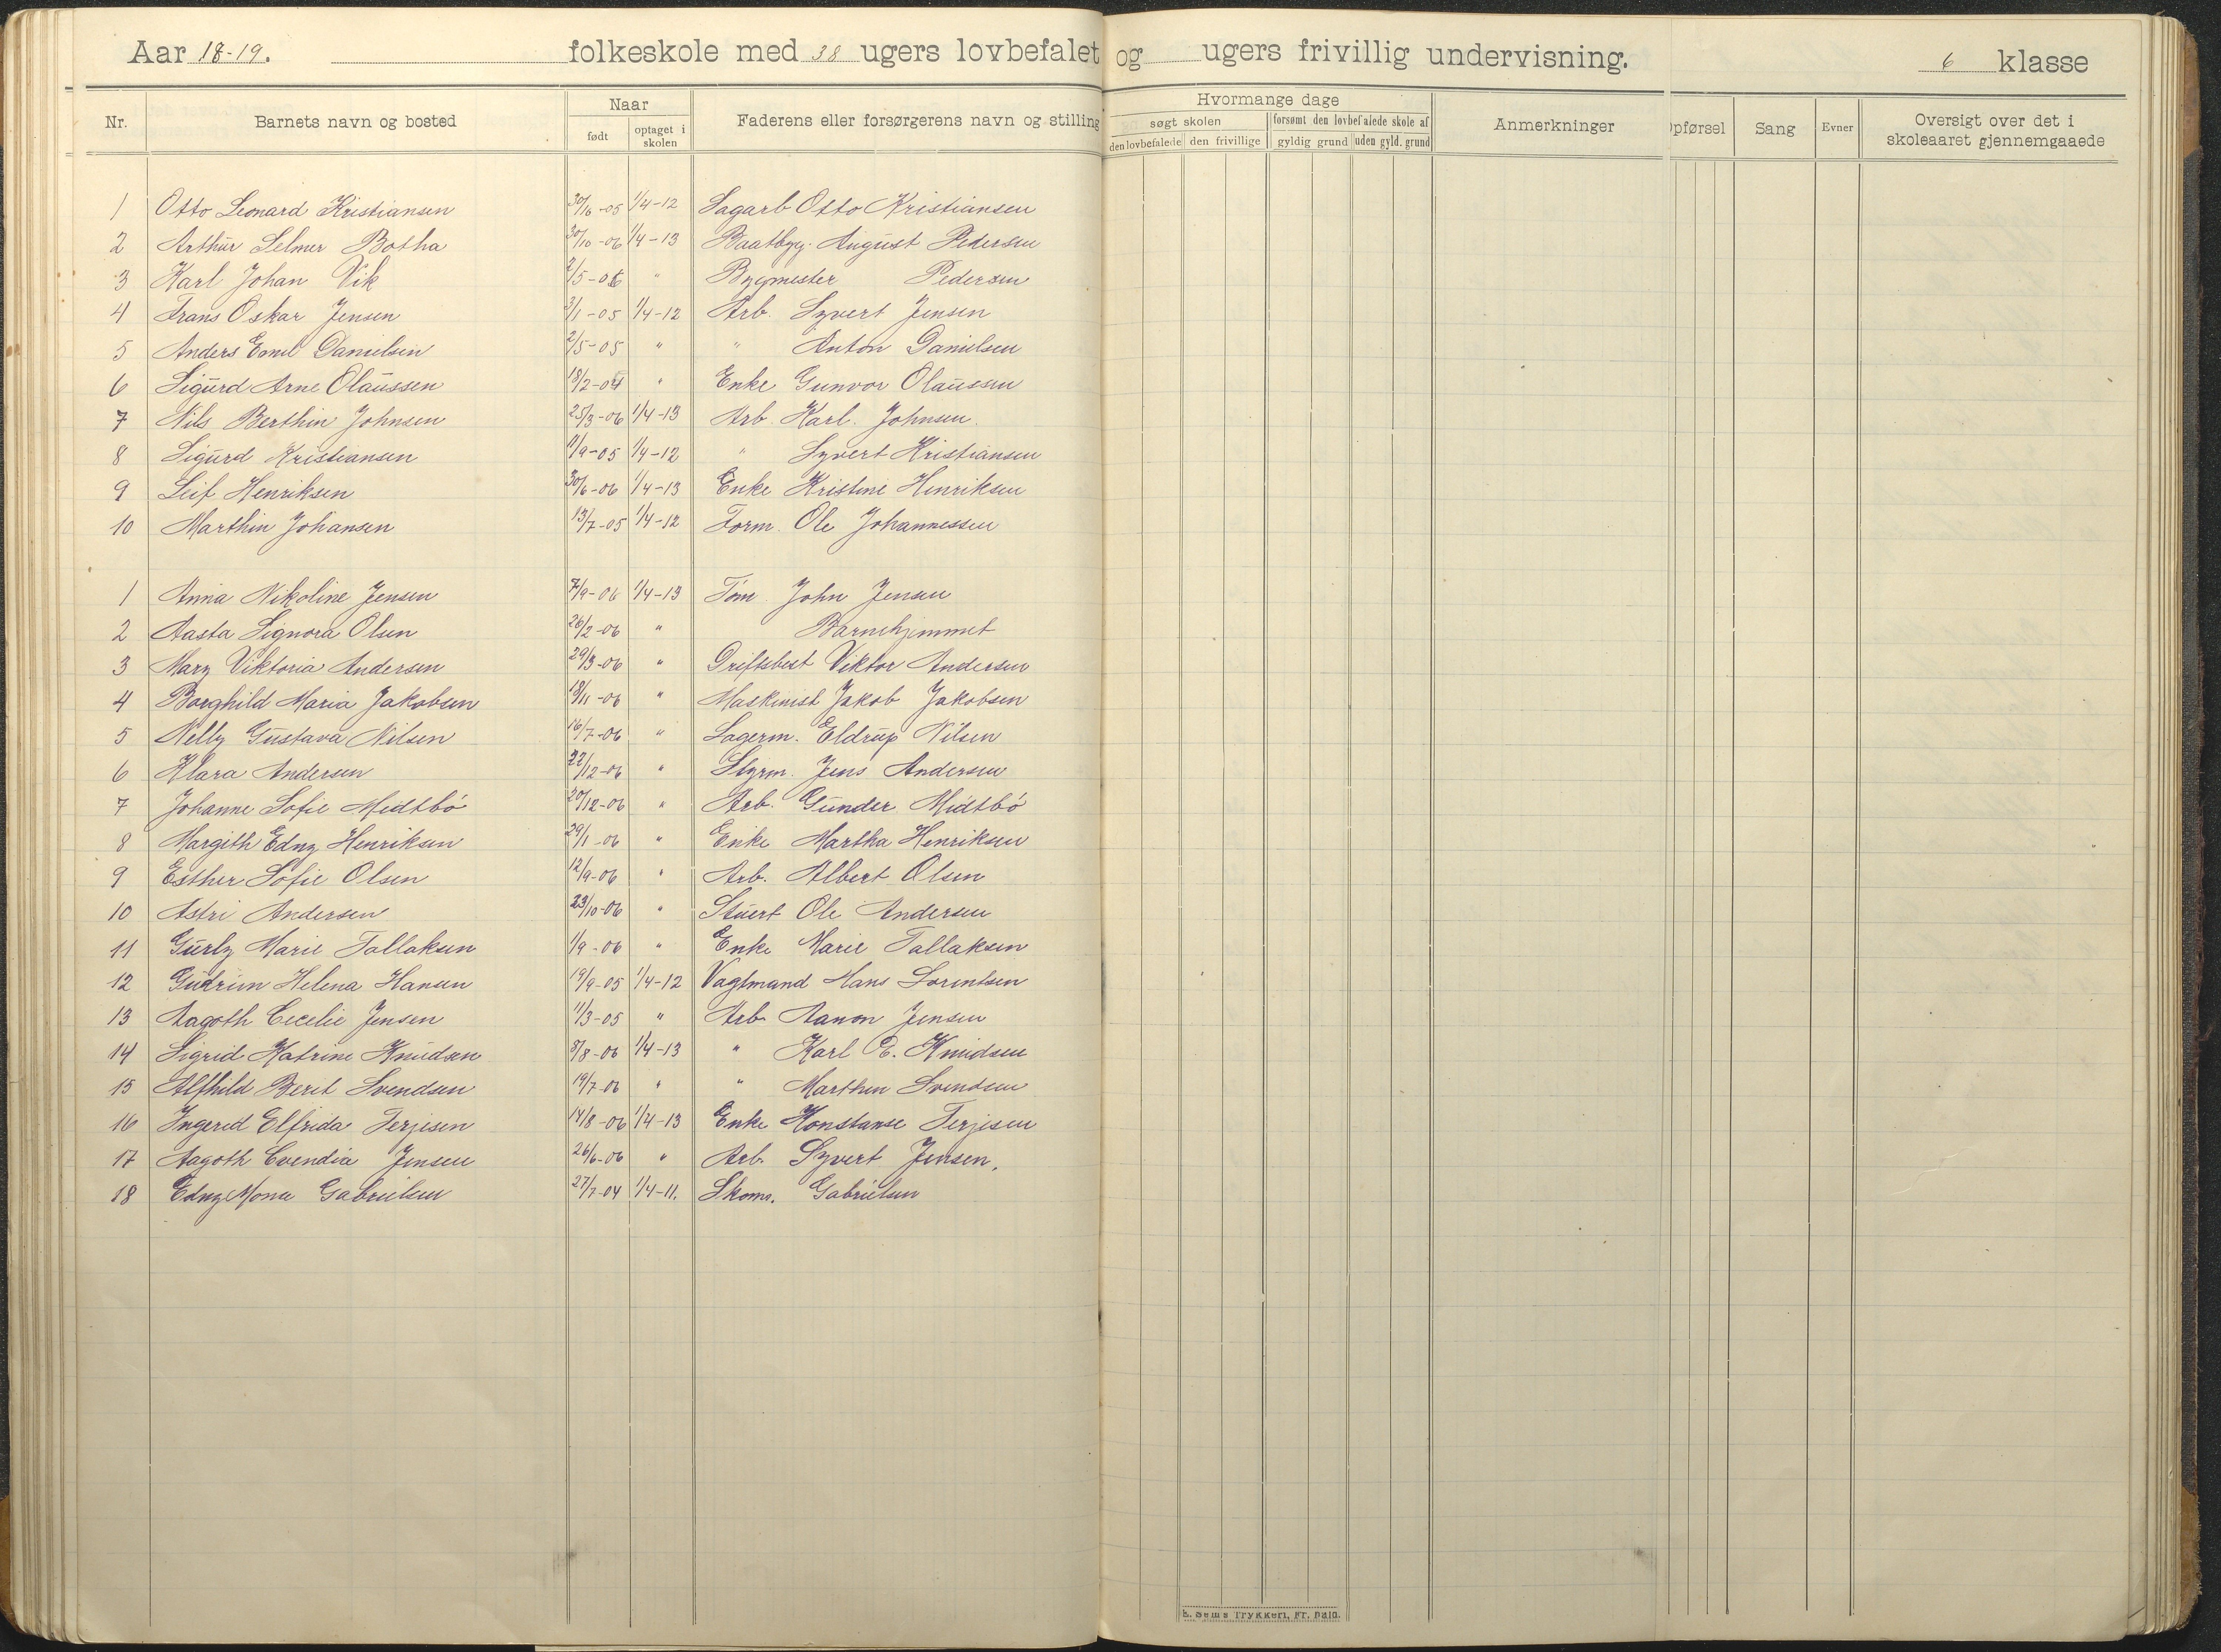 Aar 18-19. folkeskole med 38 ugers lovbefalet og ugers frivillig undervisning. 6 klasse
Nr. Barnets navn og bosted Naar født optaget i skolen Faderens eller forsørgerens navn og stilling Hvormange dage søgt skolen den lovbefalede den frivillige forsømt den lovbefalede skole af gyldig grund uden gyld. grund Anmerkninger Opførsel Sang Evner Oversigt over det i skoleaaret gjennemgaaede
1 Otto Leonard Kristiansen 30/6-05 1/4-12 Sagarb Otto Kristiansen
2 Arthur Selmer Botha 30/10-06 1/4-13 Baatbyg. August Pedersen
3 Karl Johan Vik 2/5-06 " Bygmester Pedersen
4 Frans Oskar Jensen 3/1-05 1/4-12 Arb. Syvert Jensen
5 Anders Emil Danielsen 2/5-05 " " Anton Danielsen
6 Sigurd Arne Olaussen 18/2-04 " Enke Gunvor Olaussen
7 Nils Berthin Johnsen 25/3-06 1/4-13 Arb. Karl. Johnsen
8 Sigurd Kristiansen 11/9-05 1/4-12 " Syvert Kristiansen
9 Leif Henriksen 30/6-06 1/4-13 Enke Kristine Henriksen
10 Marthin Johansen 13/7-05 1/4-12 Form. Ole Johannessen
1 Anna Nikoline Jensen 7/9-06 1/4-13 Tøm. John Jensen
2 Aasta Signora Olsen 26/2-06 " Barnehjemmet
3 Mary Viktoria Andersen 29/3-06 " Driftsbest Viktor Andersen
4 Borghild Maria Jakobsen 18/11-06 " Maskinist Jakob Jakobsen
5 Nelly Gustava Nilsen 16/7-06 " Lagerm. Eldrup Nilsen
6 Klara Andersen 22/12-06 " Styrm. Jens Andersen
7 Johanne Sofie Midtbö 20/12-06 " Arb. Gunder Midtbö
8 Margith Edny Henriksen 29/1-06 " Enke Martha Henriksen
9 Esther Sofie Olsen 12/9-06 " Arb. Albert Olsen
10 Astri Andersen 23/10-06 " Stuert Ole Andersen
11 Gurly Marie Tallaksen 1/9-06 " Enke Marie Tallaksen
12 Gudrun Helena Hansen 19/9-05 1/4-12 Vagtmand Hans Lorentsen
13 Aagoth Cecelie Jensen 11/3-05 " Arb. Aanon Jensen
14 Sigrid Katrine Knudsen 8/8-06 1/4-13 " Karl E. Knudsen
15 Alfhild Berit Svendsen 19/7-06 " " Marthin Svendsen
16 Ingerid Elfrida Terjesen 14/8-06 1/4-13 Enke Konstanse Terjesen
17 Aagoth Evendia Jensen 26/6-06 " Arb. Syvert Jensen.
18 Edny Mona Gabrielsen 27/7-04 1/4-11. Skom. Gabrielsen
E. Sems Trykkeri, Fr. hald.